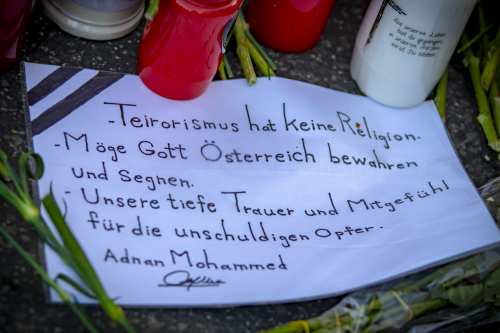 - Teirorismus hat keine Religion.
- Möge Gott Österreich bewahren
und segnen.
- Unsere tiefe Trauer und Mitgefühl
für die unschuldigen Opfer.
Adnan Mohammed